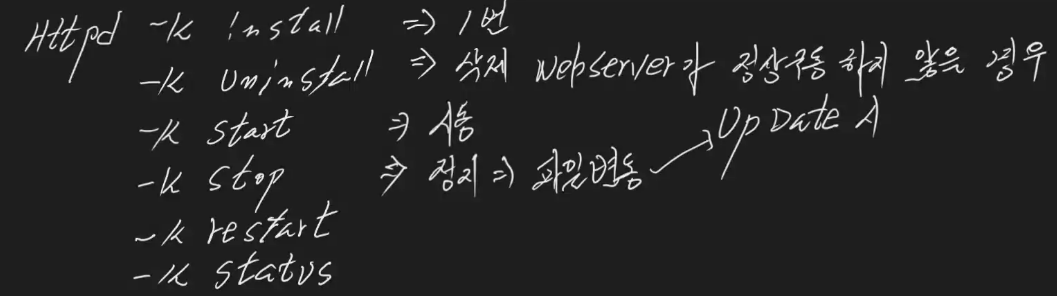 Httpd -k install => 1번
-k Uninstall => 삭제 Webserver가 정상구동 하지 않은 경우
-k start => 시동
-k stop => 정지 => 파일변동 → UpDate 시
-k restart
-k status